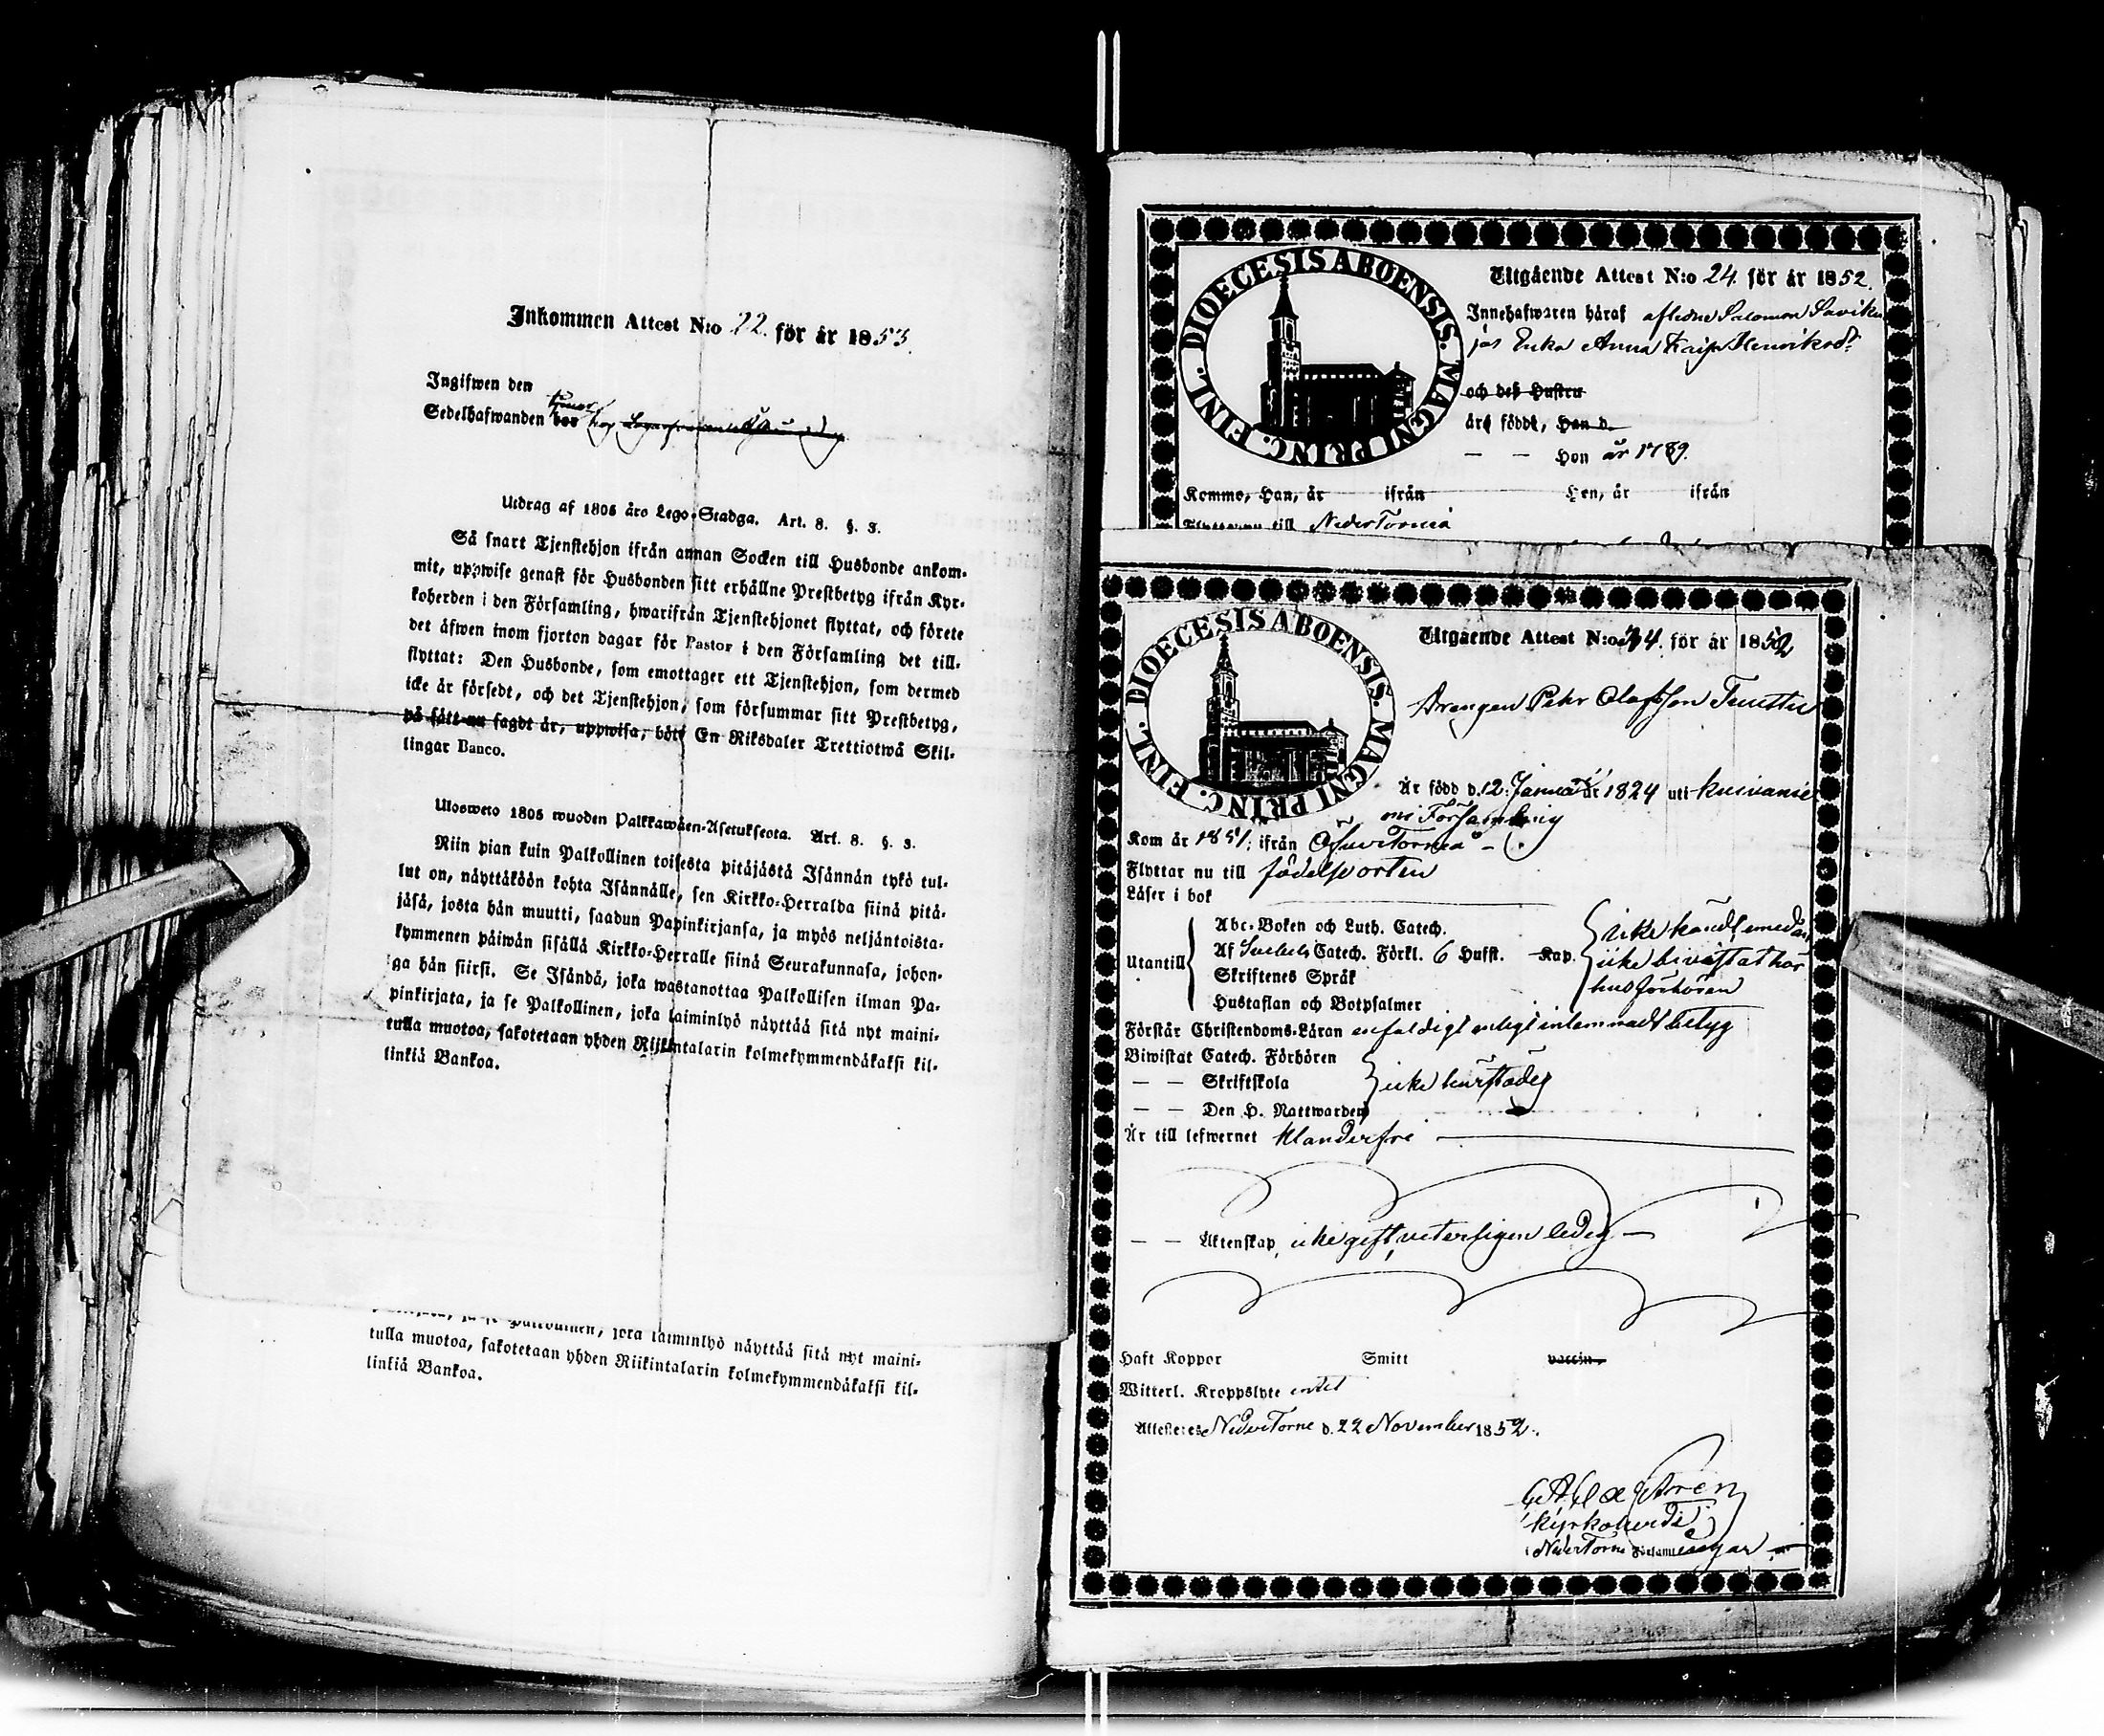 Inkommen Attest N:o 22. för år 1853.
Ingifwen den
Sedelhafwanden bor hos
Utdrag af 1805 års Lego-Stadga. Art. 8. §. 3.
Så snart Tjenstehjon ifrån annan Socken till Husbonde ankom-
mit, uppwise genast för Husbonden sitt erhållne Prestbetyg ifrån Kyr-
koherden i den Församling, hwarifrån Tjenstehjonet flyttat, och förete
det äfwen inom fjorton dagar för Pastor i den Församling det till-
flyttat: Den Husbonde, som emottager ett Tjenstehjon, som dermed
icke är försedt, och det Tjenstehjon, som försummar sitt Prestbetyg,
på sätt nu sagdt är, uppwisa, böte En Riksdaler Trettiotwå Skil-
lingar Banco.
Ulosweto 1805 wuoden Palkkawäen-Asetuksesta. Art. 8. §. 3.
Niin pian kuin Palkollinen toisesta pitäjästä Isännän tykö tul-
lut on, näyttäköön kohta Isännälle, sen Kirkko-Herralda siinä pitä-
jäsä, josta hän muutti, saadun Papinkirjansa, ja myös neljäntoista-
kymmenen päiwän sisällä Kirkko-Herralle siinä Seurakunnasa, johon-
ga hän siirsi. Se Isändä, joka wastanottaa Palkollisen ilman Pa-
pinkirjata, ja se Palkollinen, joka laiminlyö näyttää sitä nyt maini-
tulla muotoa, sakotetaan yhden Riikintalarin kolmekymmendäkaksi kil-
linkiä Bankoa.
Palkollinen, joka laiminlyö näyttää sitä nyt maini-
tulla muotoa, sakotetaan yhden Riikintalarin kolmekymmendäkaksi kil-
linkiä Bankoa.
DIOECESIS ABOENSIS. MAGNI PRINC. FINL.
Utgående Attest N:o 24. för år 1852.
Innehafwaren häraf aflidne Salomon
Enka Anna Kaisa Henriksdr
och deß Hustru
äro födde, Han d.
— — Hon år 1789.
Kommo, Han, år ifrån Hon, år ifrån
Flyttar nu till NederTorneå
DIOECESIS ABOENSIS. MAGNI PRINC. FINL.
Utgående Attest N:o 74. för år 1852
Drengen Pehr Olofsson
Är född d. 12. Januari år 1824 uti
Församling
Kom år 1851. ifrån ÖfverTorneå
Flyttar nu till födelseorten
Läser i bok
Abc-Boken och Luth. Catech.
Utantill Af Svebelii Catech. Förkl. 6 Hufst. Kap.
Skriftenes Språk
Hustaflan och Botpsalmer
icke kändt, emedan
icke bivistat här
husförhören
Förstår Christendoms-Läran enfaldigt enligt inlemnadt betyg
Biwistat Catech. Förhören
— — Skriftskola icke härstädes
— — Den H. Nattwarden
Är till lefwernet klanderfri
— — Äktenskap icke gift, veterligen ledig
Haft Koppor Smitt vaccin.
Witterl. Kroppslyte intet
Attesteres NederTorne d. 22 November 1852.
Kyrkoherde i
NederTorne Församlingar